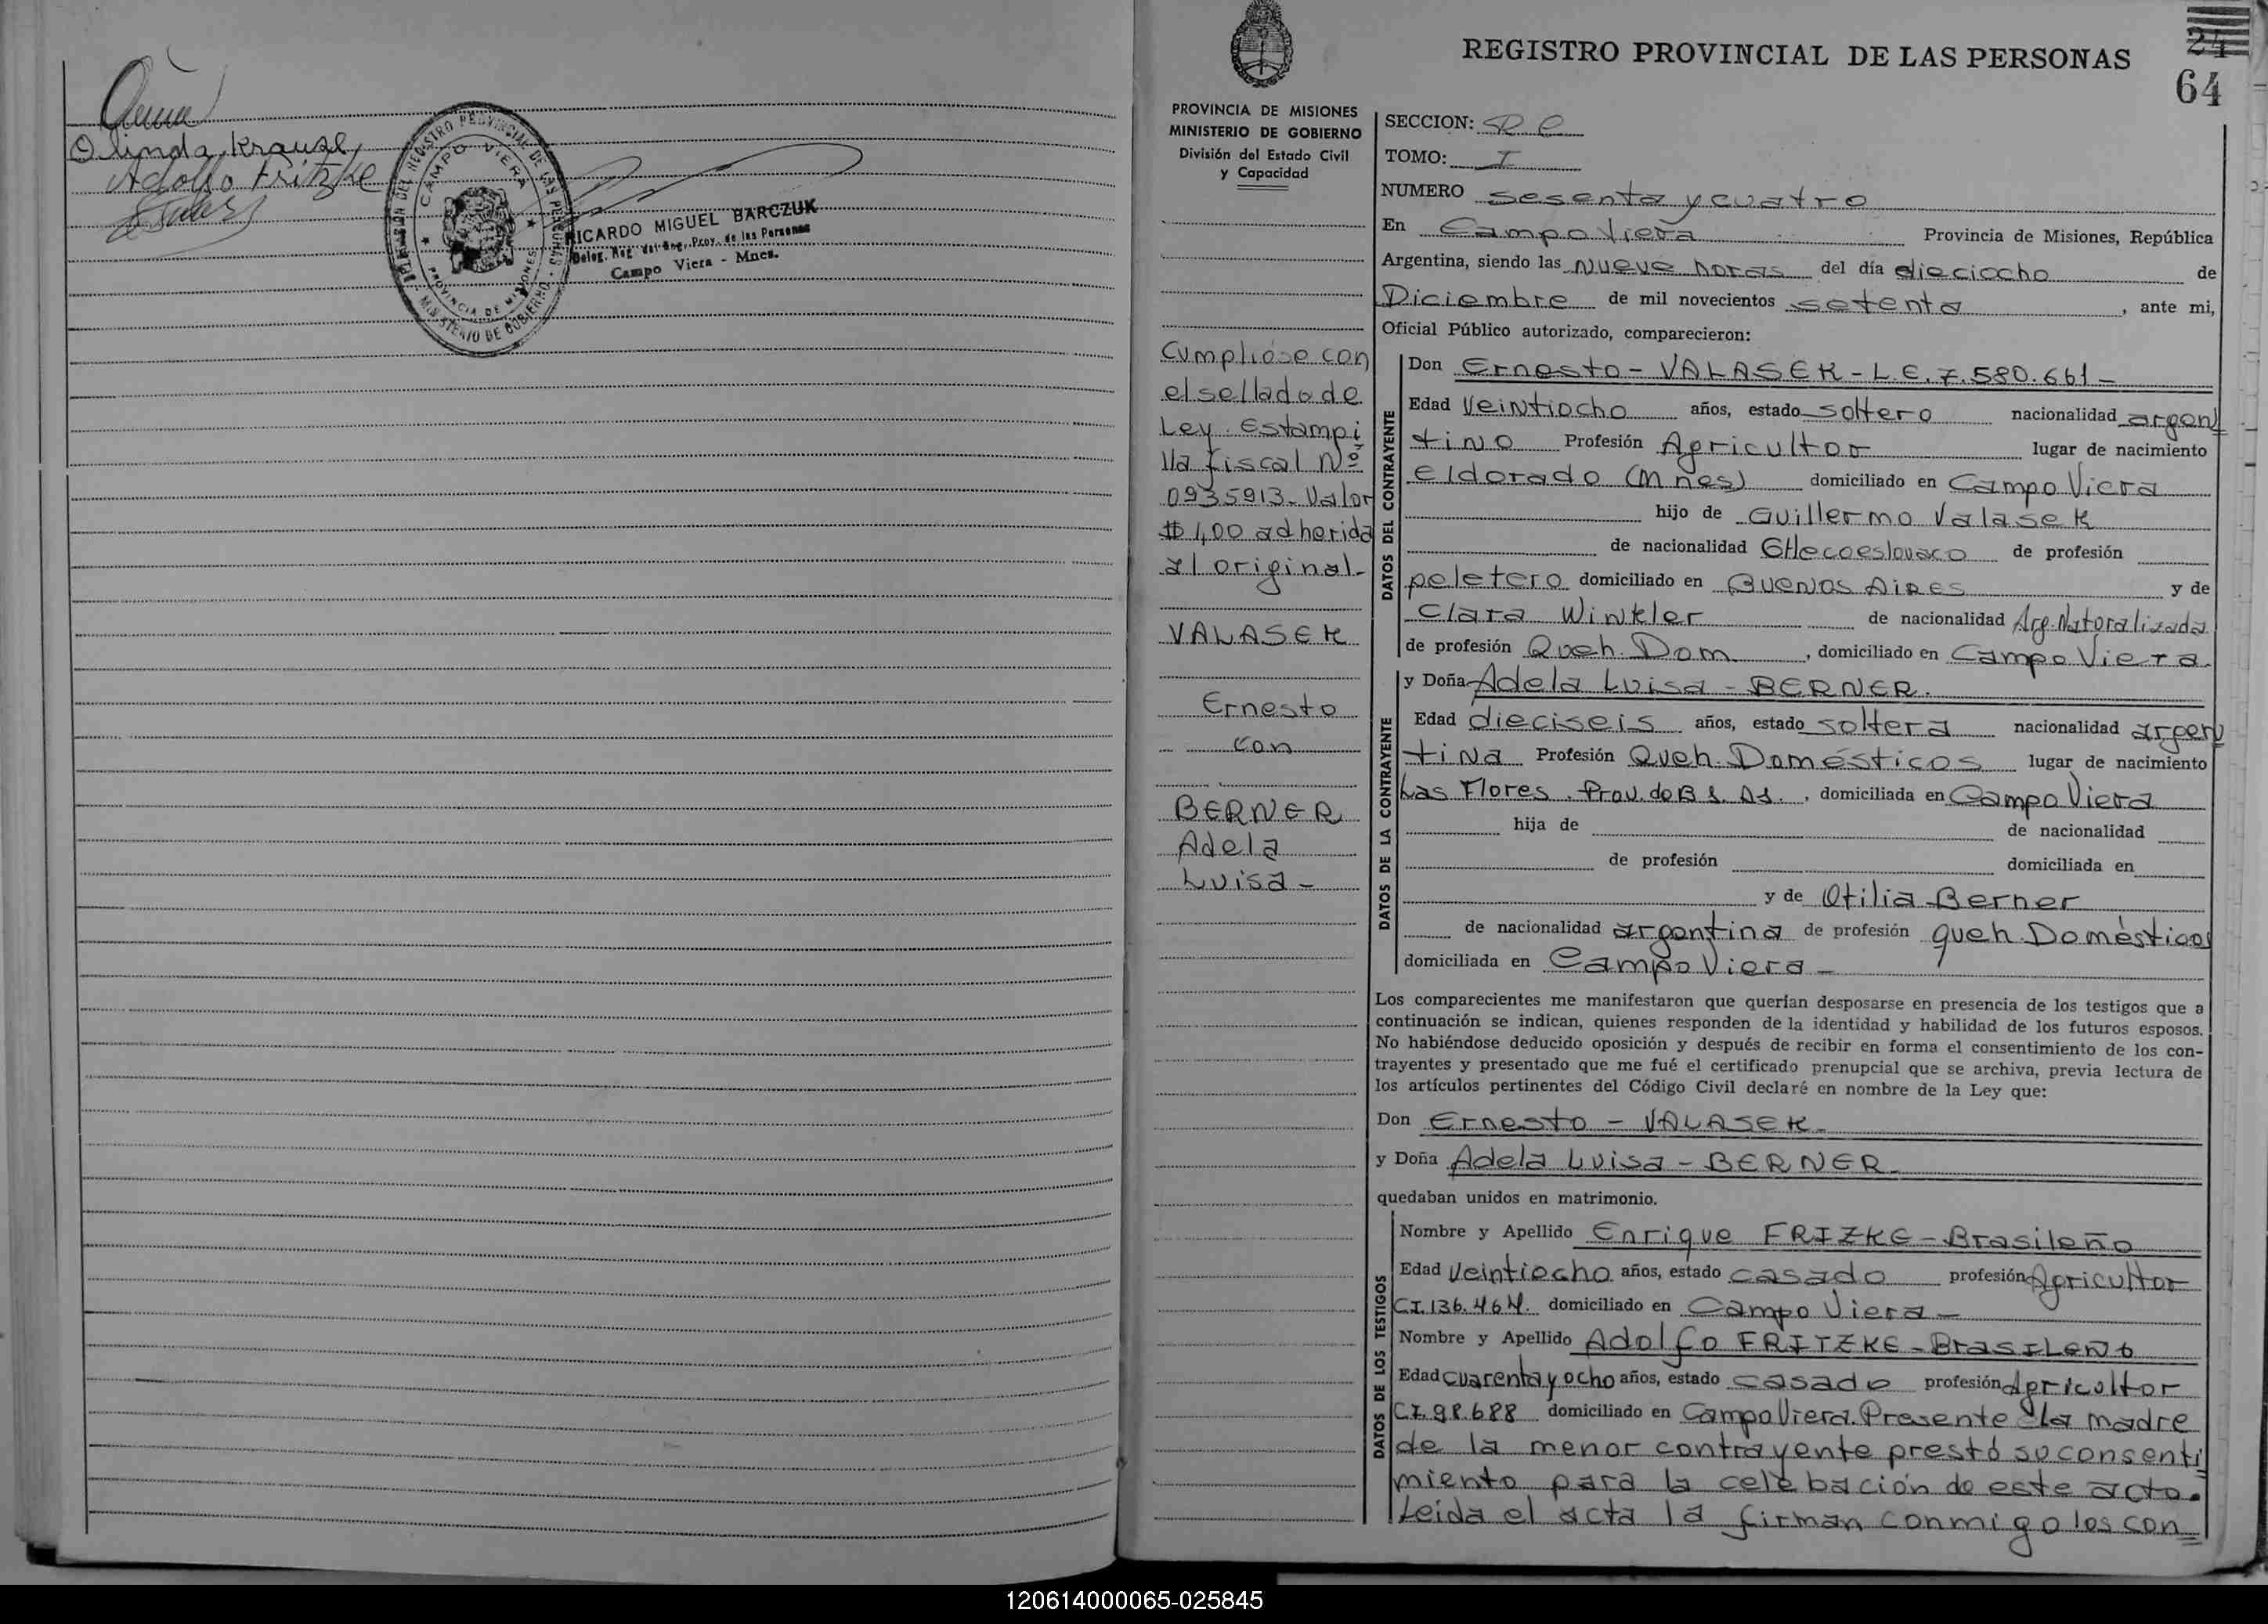 Olinda Krause
Adolfo Fritzke
DELEGACIÓN DEL REGISTRO PROVINCIAL DE LAS PERSONAS - MINISTERIO DE GOBIERNO
CAMPO VIERA
PROVINCIA DE MISIONES
RICARDO MIGUEL BARCZUK
Deleg. Reg. del Reg. Prov. de las Personas
Campo Viera - Mnes.
REGISTRO PROVINCIAL DE LAS PERSONAS
24
64
PROVINCIA DE MISIONES
MINISTERIO DE GOBIERNO
División del Estado Civil
y Capacidad
Cumplióse con
el sellado de
Ley. Estampi
lla fiscal Nº
0935913- Valor
$ 4,00 adherida
al original-
VALASEK
Ernesto
con
BERNER
Adela
Luisa-
SECCION:
TOMO: I
NUMERO sesenta y cuatro
En Campo Viera Provincia de Misiones, República
Argentina, siendo las nueve horas del día dieciocho de
Diciembre de mil novecientos setenta, ante mi,
Oficial Público autorizado, comparecieron:
DATOS DEL CONTRAYENTE
Don Ernesto - VALASEK - L.E. 7.580.661-
Edad Veintiocho años, estado soltero nacionalidad argen
tino Profesión Agricultor lugar de nacimiento
Eldorado (Mnes) domiciliado en Campo Viera
hijo de Guillermo Valasek
de nacionalidad CHecoeslovaco de profesión
peletero domiciliado en Buenos Aires y de
Clara Winkler de nacionalidad Arg. Natoralizada
de profesión Queh. Dom , domiciliado en Campo Viera.
DATOS DE LA CONTRAYENTE
y Doña Adela Luisa - BERNER.
Edad dieciseis años, estado soltera nacionalidad argen
tina Profesión Queh. Domésticos lugar de nacimiento
Las Flores. Prov. de Bs. As. , domiciliada en Campo Viera
hija de de nacionalidad
de profesión domiciliada en
y de Otilia Berner
de nacionalidad argentina de profesión queh. Domésticos
domiciliada en Campo Viera-
Los comparecientes me manifestaron que querían desposarse en presencia de los testigos que a
continuación se indican, quienes responden de la identidad y habilidad de los futuros esposos.
No habiéndose deducido oposición y después de recibir en forma el consentimiento de los con-
trayentes y presentado que me fué el certificado prenupcial que se archiva, previa lectura de
los artículos pertinentes del Código Civil declaré en nombre de la Ley que:
Don Ernesto - VALASEK-
y Doña Adela Luisa - BERNER-
quedaban unidos en matrimonio.
DATOS DE LOS TESTIGOS
Nombre y Apellido Enrique FRIZKE - Brasileño
Edad veintiocho años, estado casado profesión Agricultor
CI. 136.464. domiciliado en Campo Viera-
Nombre y Apellido Adolfo FRITZKE - BrasILeño
Edad cuarenta y ocho años, estado casado profesión Agricultor
CI. 98.688 domiciliado en Campo Viera. Presente la madre
de la menor contrayente prestó su consenti
miento para la celebación de este acto.
Leida el acta la firman conmigo los con
120614000065-025845